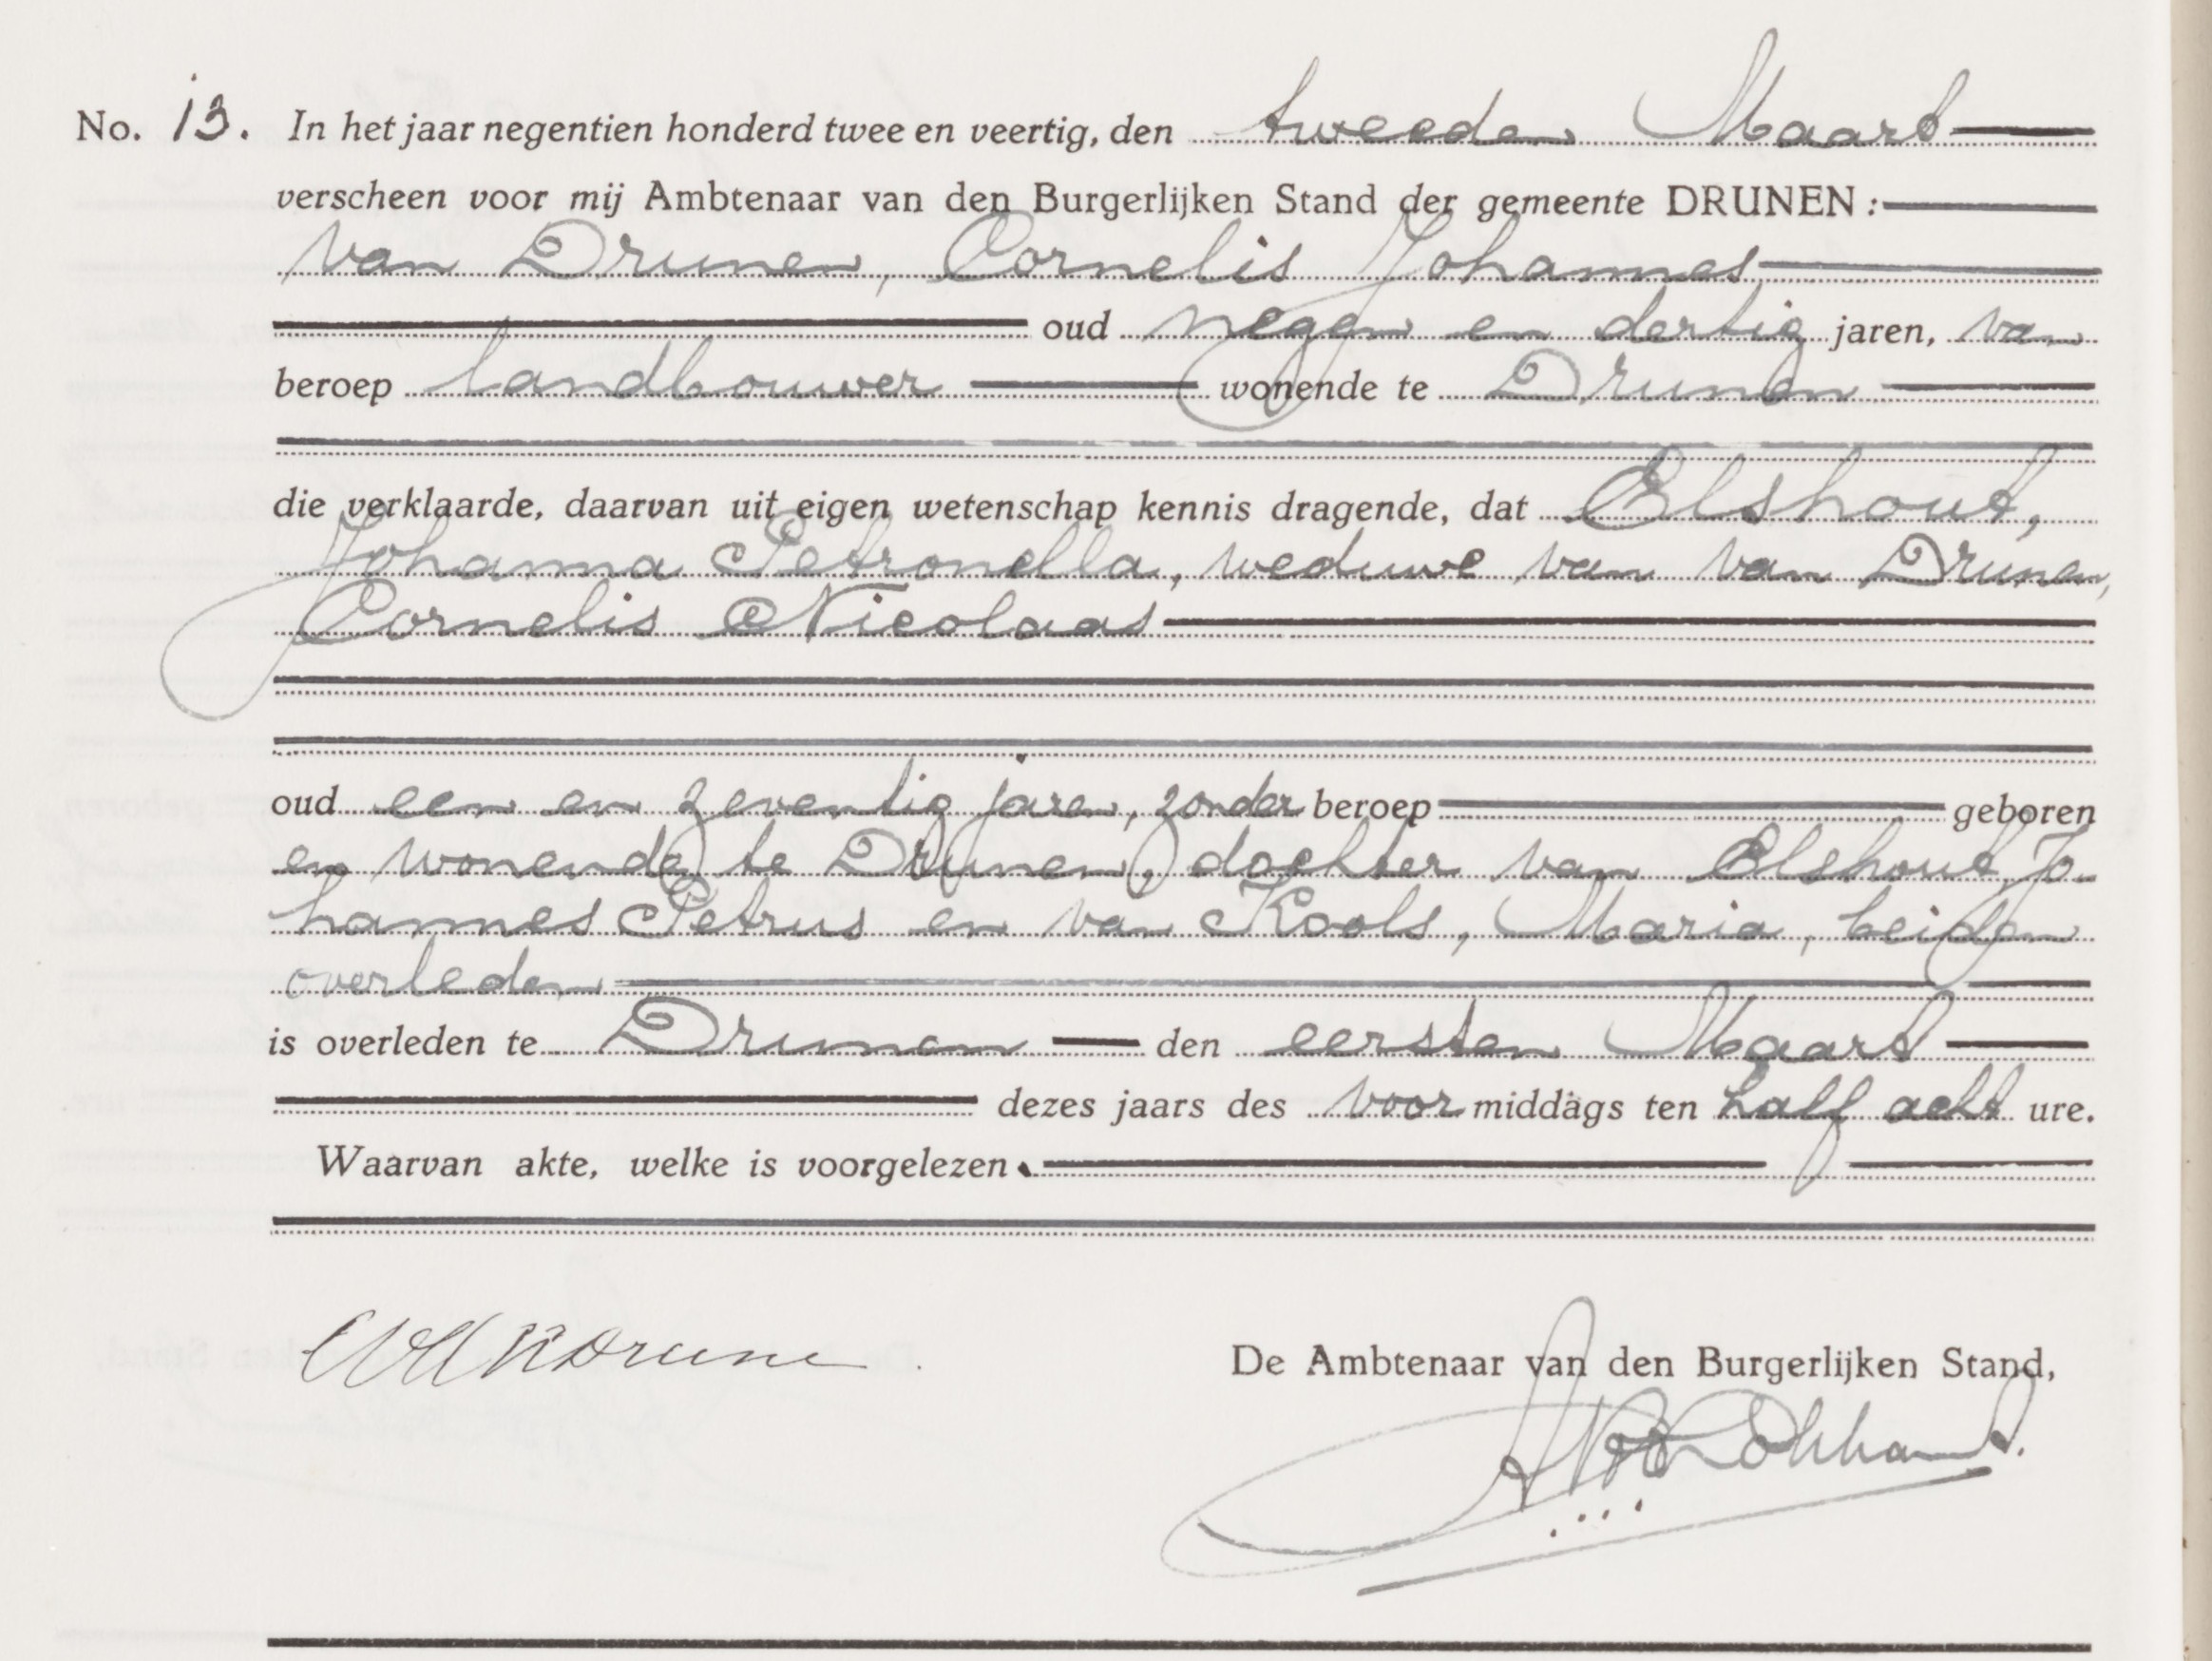 No. 13. In het jaar negentien honderd twee en veertig, den tweeden Maart
verscheen voor mij Ambtenaar van den Burgerlijken Stand der gemeente DRUNEN:
van Drunen, Cornelis Johannes
oud negen en dertig jaren, van
beroep landbouwer wonende te Drunen
die verklaarde, daarvan uit eigen wetenschap kennis dragende, dat Elshout,
Johanna Petronella, weduwe van van Drunen,
Cornelis Nicolaas
oud een en zeventig jaren, zonder beroep geboren
en wonende te Drunen, dochter van Elshout, Jo-
hannes Petrus en van Kools, Maria, beiden
overleden
is overleden te Drunen den eersten Maart
dezes jaars des voormiddags ten half acht ure.
Waarvan akte, welke is voorgelezen.
De Ambtenaar van den Burgerlijken Stand,